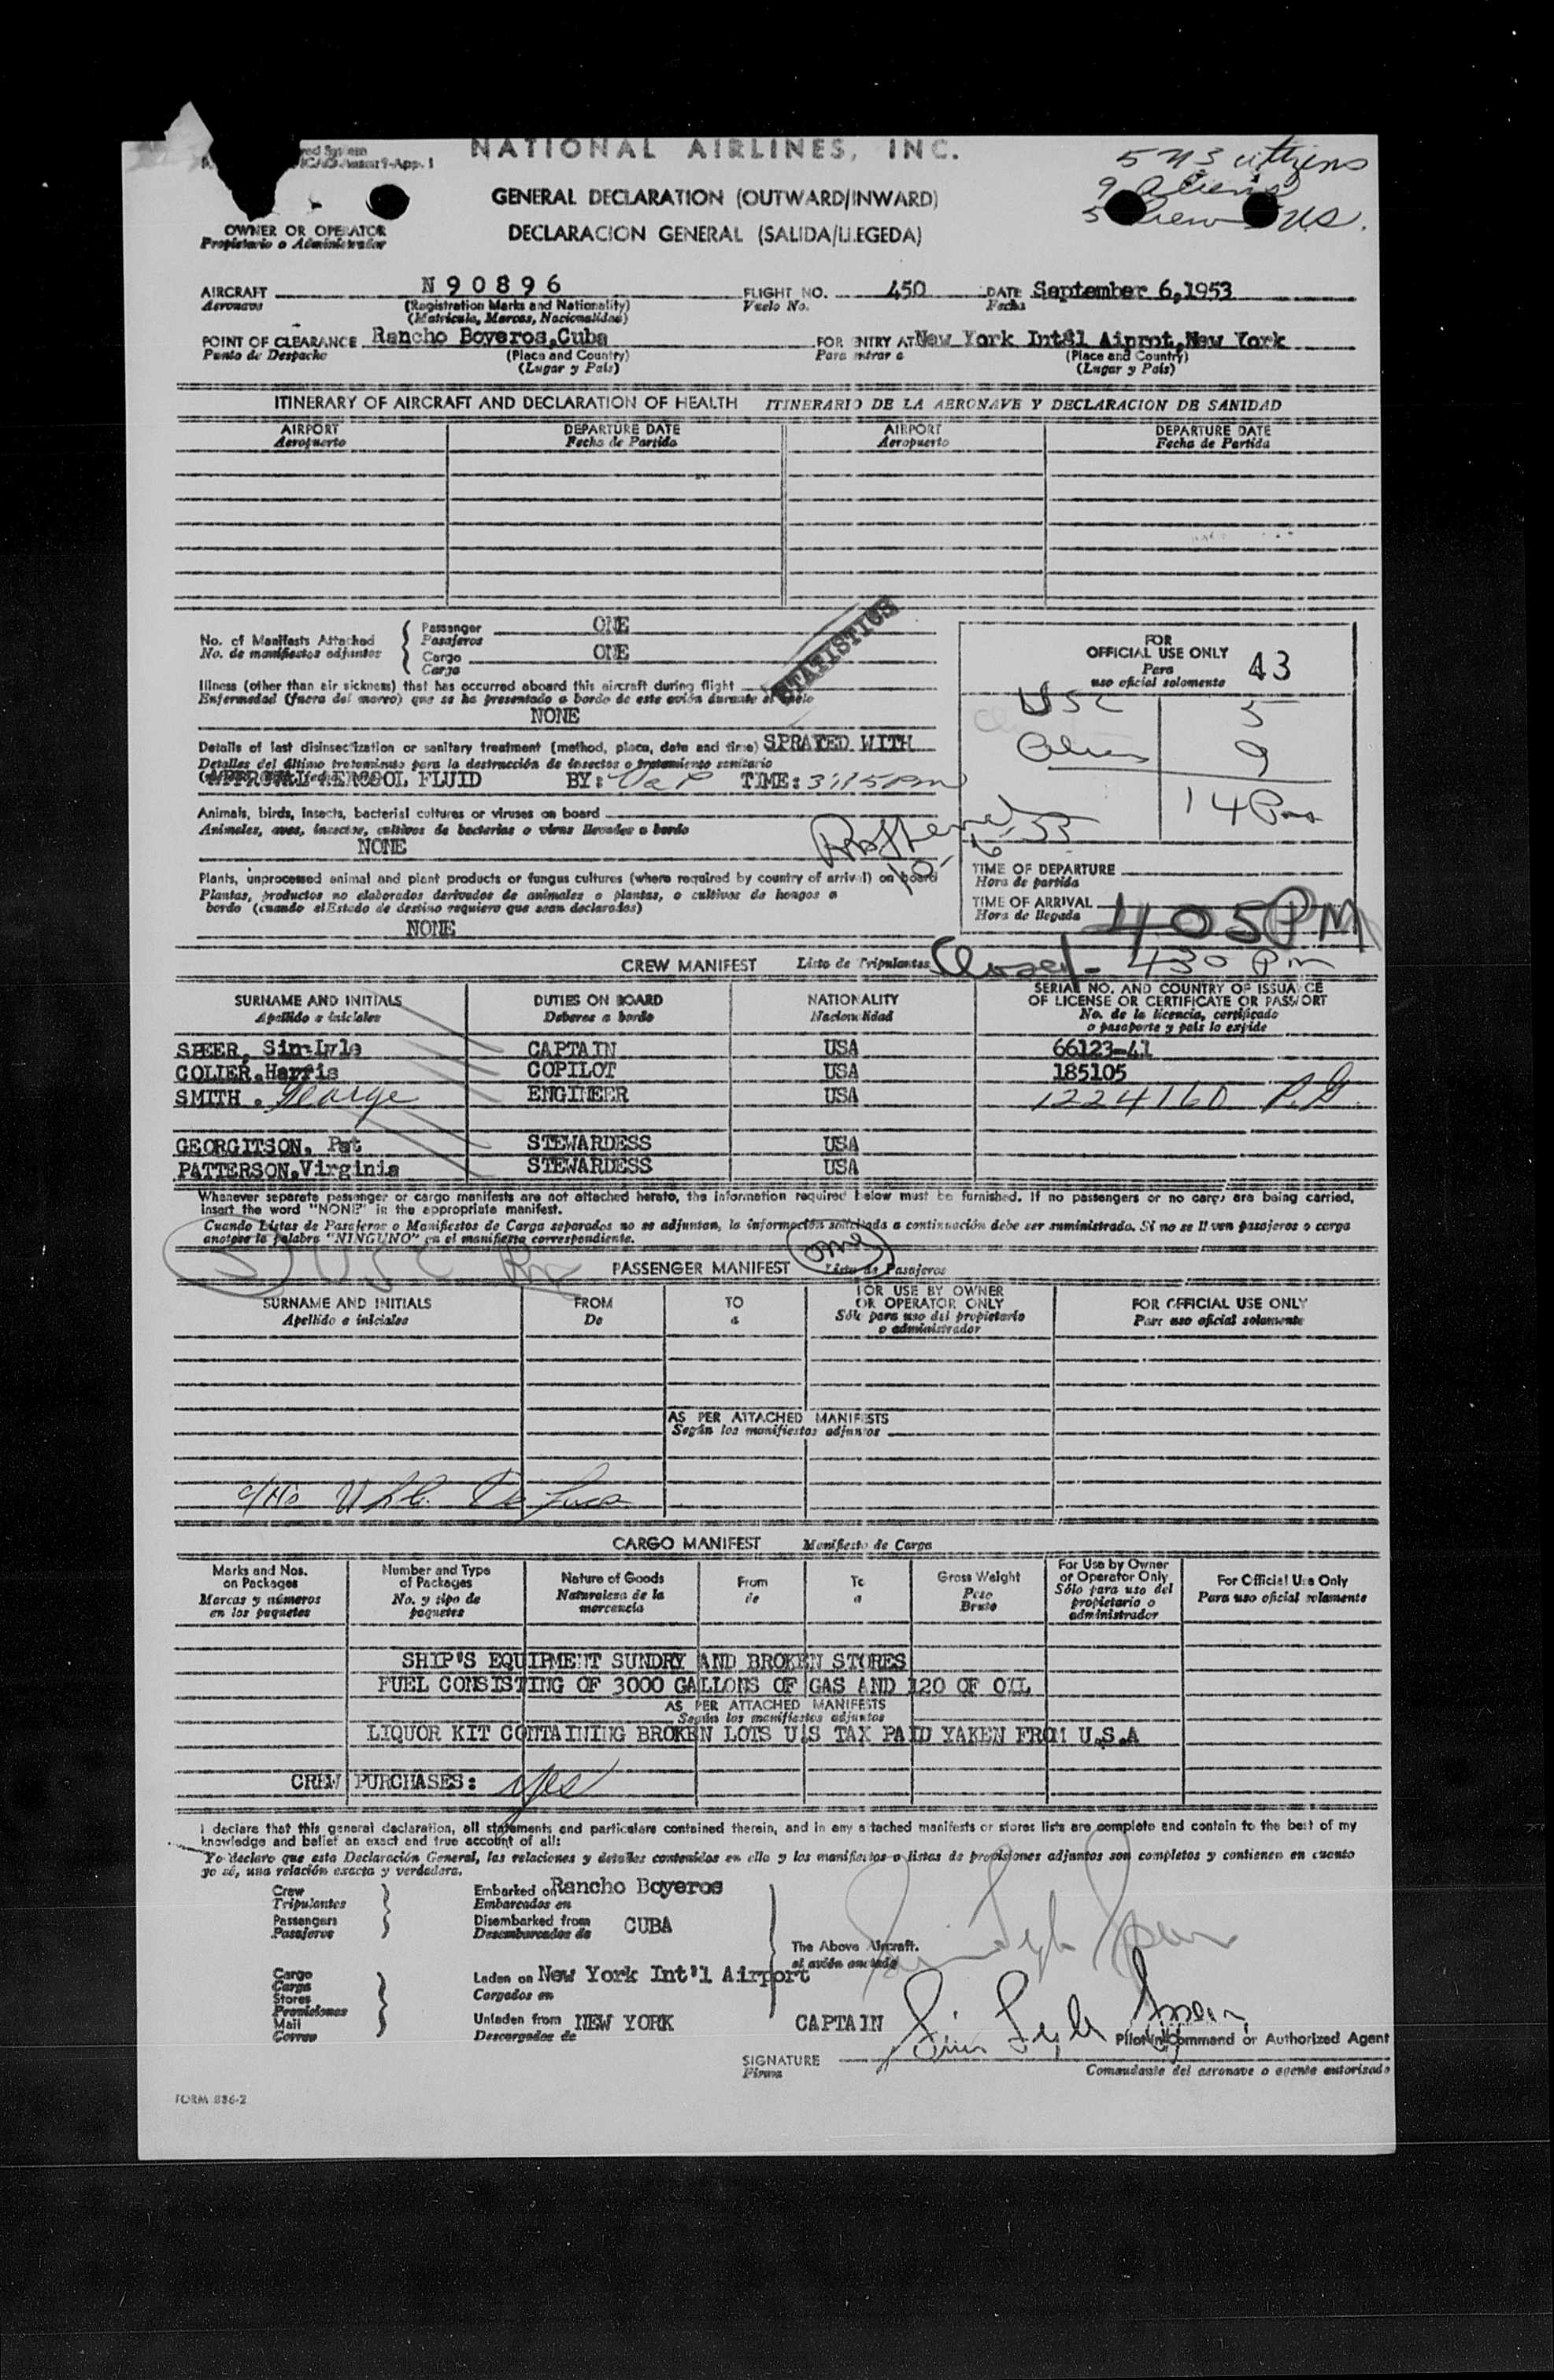 NATIONAL AIRLINES, INC.
5 US citizens
9 Aliens
5 Crew US.
GENERAL DECLARATION (OUTWARD/INWARD)
DECLARACION GENERAL (SALIDA/LLEGEDA)
OWNER OR OPERATOR
Propietario o Administrador
AIRCRAFT N90896 FLIGHT NO. 450 DATE September 6,1953
Aeronave (Registration Marks and Nationality) Vuelo No. Fecha
(Matricula, Marcas, Nacionalidad)
POINT OF CLEARANCE Rancho Boyeros,Cuba FOR ENTRY AT New York Int&l Aiprot,New York
Punto de Despacho (Place and Country) Para entrar a (Place and Country)
(Lugar y Pais) (Lugar y Pais)
ITINERARY OF AIRCRAFT AND DECLARATION OF HEALTH ITINERARIO DE LA AERONAVE Y DECLARACION DE SANIDAD
AIRPORT DEPARTURE DATE AIRPORT DEPARTURE DATE
Aeropuerto Fecha de Partida Aeropuerto Fecha de Partida
No. of Manifests Attached Passenger ONE
No. de manifiestos adjuntos Pasajeros
Cargo ONE
Carga
STATISTICS
Illness (other than air sickness) that has occurred aboard this aircraft during flight
Enfermedad (fuera del mareo) que se ha presentado a bordo de este avión durante el vuelo
NONE
Details of last disinsectization or sanitary treatment (method, place, date and time) SPRAYED WITH
Detalles del último tratamiento para la destrucción de insectos o tratamiento sanitario
APPROVAL AEROSOL FLUID BY: TIME: 3:15 pm
Animals, birds, insects, bacterial cultures or viruses on board
Animales, aves, insectos, cultivos de bacterias o virus llevados a bordo
NONE
Plants, unprocessed animal and plant products or fungus cultures (where required by country of arrival) on board
Plantas, productos no elaborados derivados de animales o plantas, o cultivos de hongos a
bordo (cuando el Estado de destino requiere que sean declarados)
NONE
FOR
OFFICIAL USE ONLY 43
Para
uso oficial solamente
USC 5
Alien 9
14 Pas
TIME OF DEPARTURE
Hora de partida
TIME OF ARRIVAL 405PM
Hora de llegada
CREW MANIFEST Lista de Tripulantes Closed - 430 Pm
SURNAME AND INITIALS DUTIES ON BOARD NATIONALITY SERIAL NO. AND COUNTRY OF ISSUANCE
OF LICENSE OR CERTIFICATE OR PASSPORT
Apellido e iniciales Deberes a bordo Nacionalidad No. de la licencia, certificado
o pasaporte y pais lo expide
SPEER, Sim-Lyle CAPTAIN USA 66123-41
COLIER.Harris COPILOT USA 185105
SMITH . George ENGINEER USA 1224160
GEORGITSON, Pat STEWARDESS USA
PATTERSON,Virginia STEWARDESS USA
Whenever separate passenger or cargo manifests are not attached hereto, the information required below must be furnished. If no passengers or no cargo are being carried,
insert the word "NONE" in the appropriate manifest.
Cuando Listas de Pasajeros o Manifiestos de Carga separados no se adjuntan, la información solicitada a continuación debe ser suministrada. Si no se llevan pasajeros o carga
anotese la palabra "NINGUNO" en el manifiesto correspondiente.
5 USC
PASSENGER MANIFEST Lista de Pasajeros
SURNAME AND INITIALS FROM TO FOR USE BY OWNER FOR OFFICIAL USE ONLY
OR OPERATOR ONLY
Apellido e iniciales De a Sólo para uso del propietario Para uso oficial solamente
o administrador
AS PER ATTACHED MANIFESTS
Según los manifiestos adjuntos
CARGO MANIFEST Manifiesto de Carga
Marks and Nos. on Packages Number and Type of Packages Nature of Goods From To Gross Weight For Use by Owner or Operator Only For Official Use Only
Marcas y números en los paquetes No. y tipo de paquetes Naturaleza de la mercancia de a Peso Bruto Sólo para uso del propietario o administrador Para uso oficial solamente
SHIP'S EQUIPMENT SUNDRY AND BROKEN STORES
FUEL CONSISTING OF 3000 GALLONS OF GAS AND 120 OF OIL
AS PER ATTACHED MANIFESTS
Según los manifiestos adjuntos
LIQUOR KIT CONTAINING BROKEN LOTS U.S TAX PAID YAKEN FROM U.S.A
CREW PURCHASES: yes
I declare that this general declaration, all statements and particulars contained therein, and in any attached manifests or stores lists are complete and contain to the best of my
knowledge and belief an exact and true account of all:
Yo declaro que esta Declaración General, las relaciones y detalles contenidos en ella y los manifiestos o listas de provisiones adjuntos son completos y contienen en cuanto
yo sé, una relación exacta y verdadera.
Crew Embarked on Rancho Boyeros
Tripulantes Embarcados en
Passengers Disembarked from CUBA
Pasajeros Desembarcados de
The Above Aircraft.
el avión anotado
Cargo Laden on New York Int'l Airport
Carga Cargados en
Stores
Provisiones
Mail Unladen from NEW YORK CAPTAIN Sim Lyle Speer
Correo Descargados de Pilot in Command or Authorized Agent
SIGNATURE
Firma Comandante del aeronave o agente autorizado
FORM 836-2